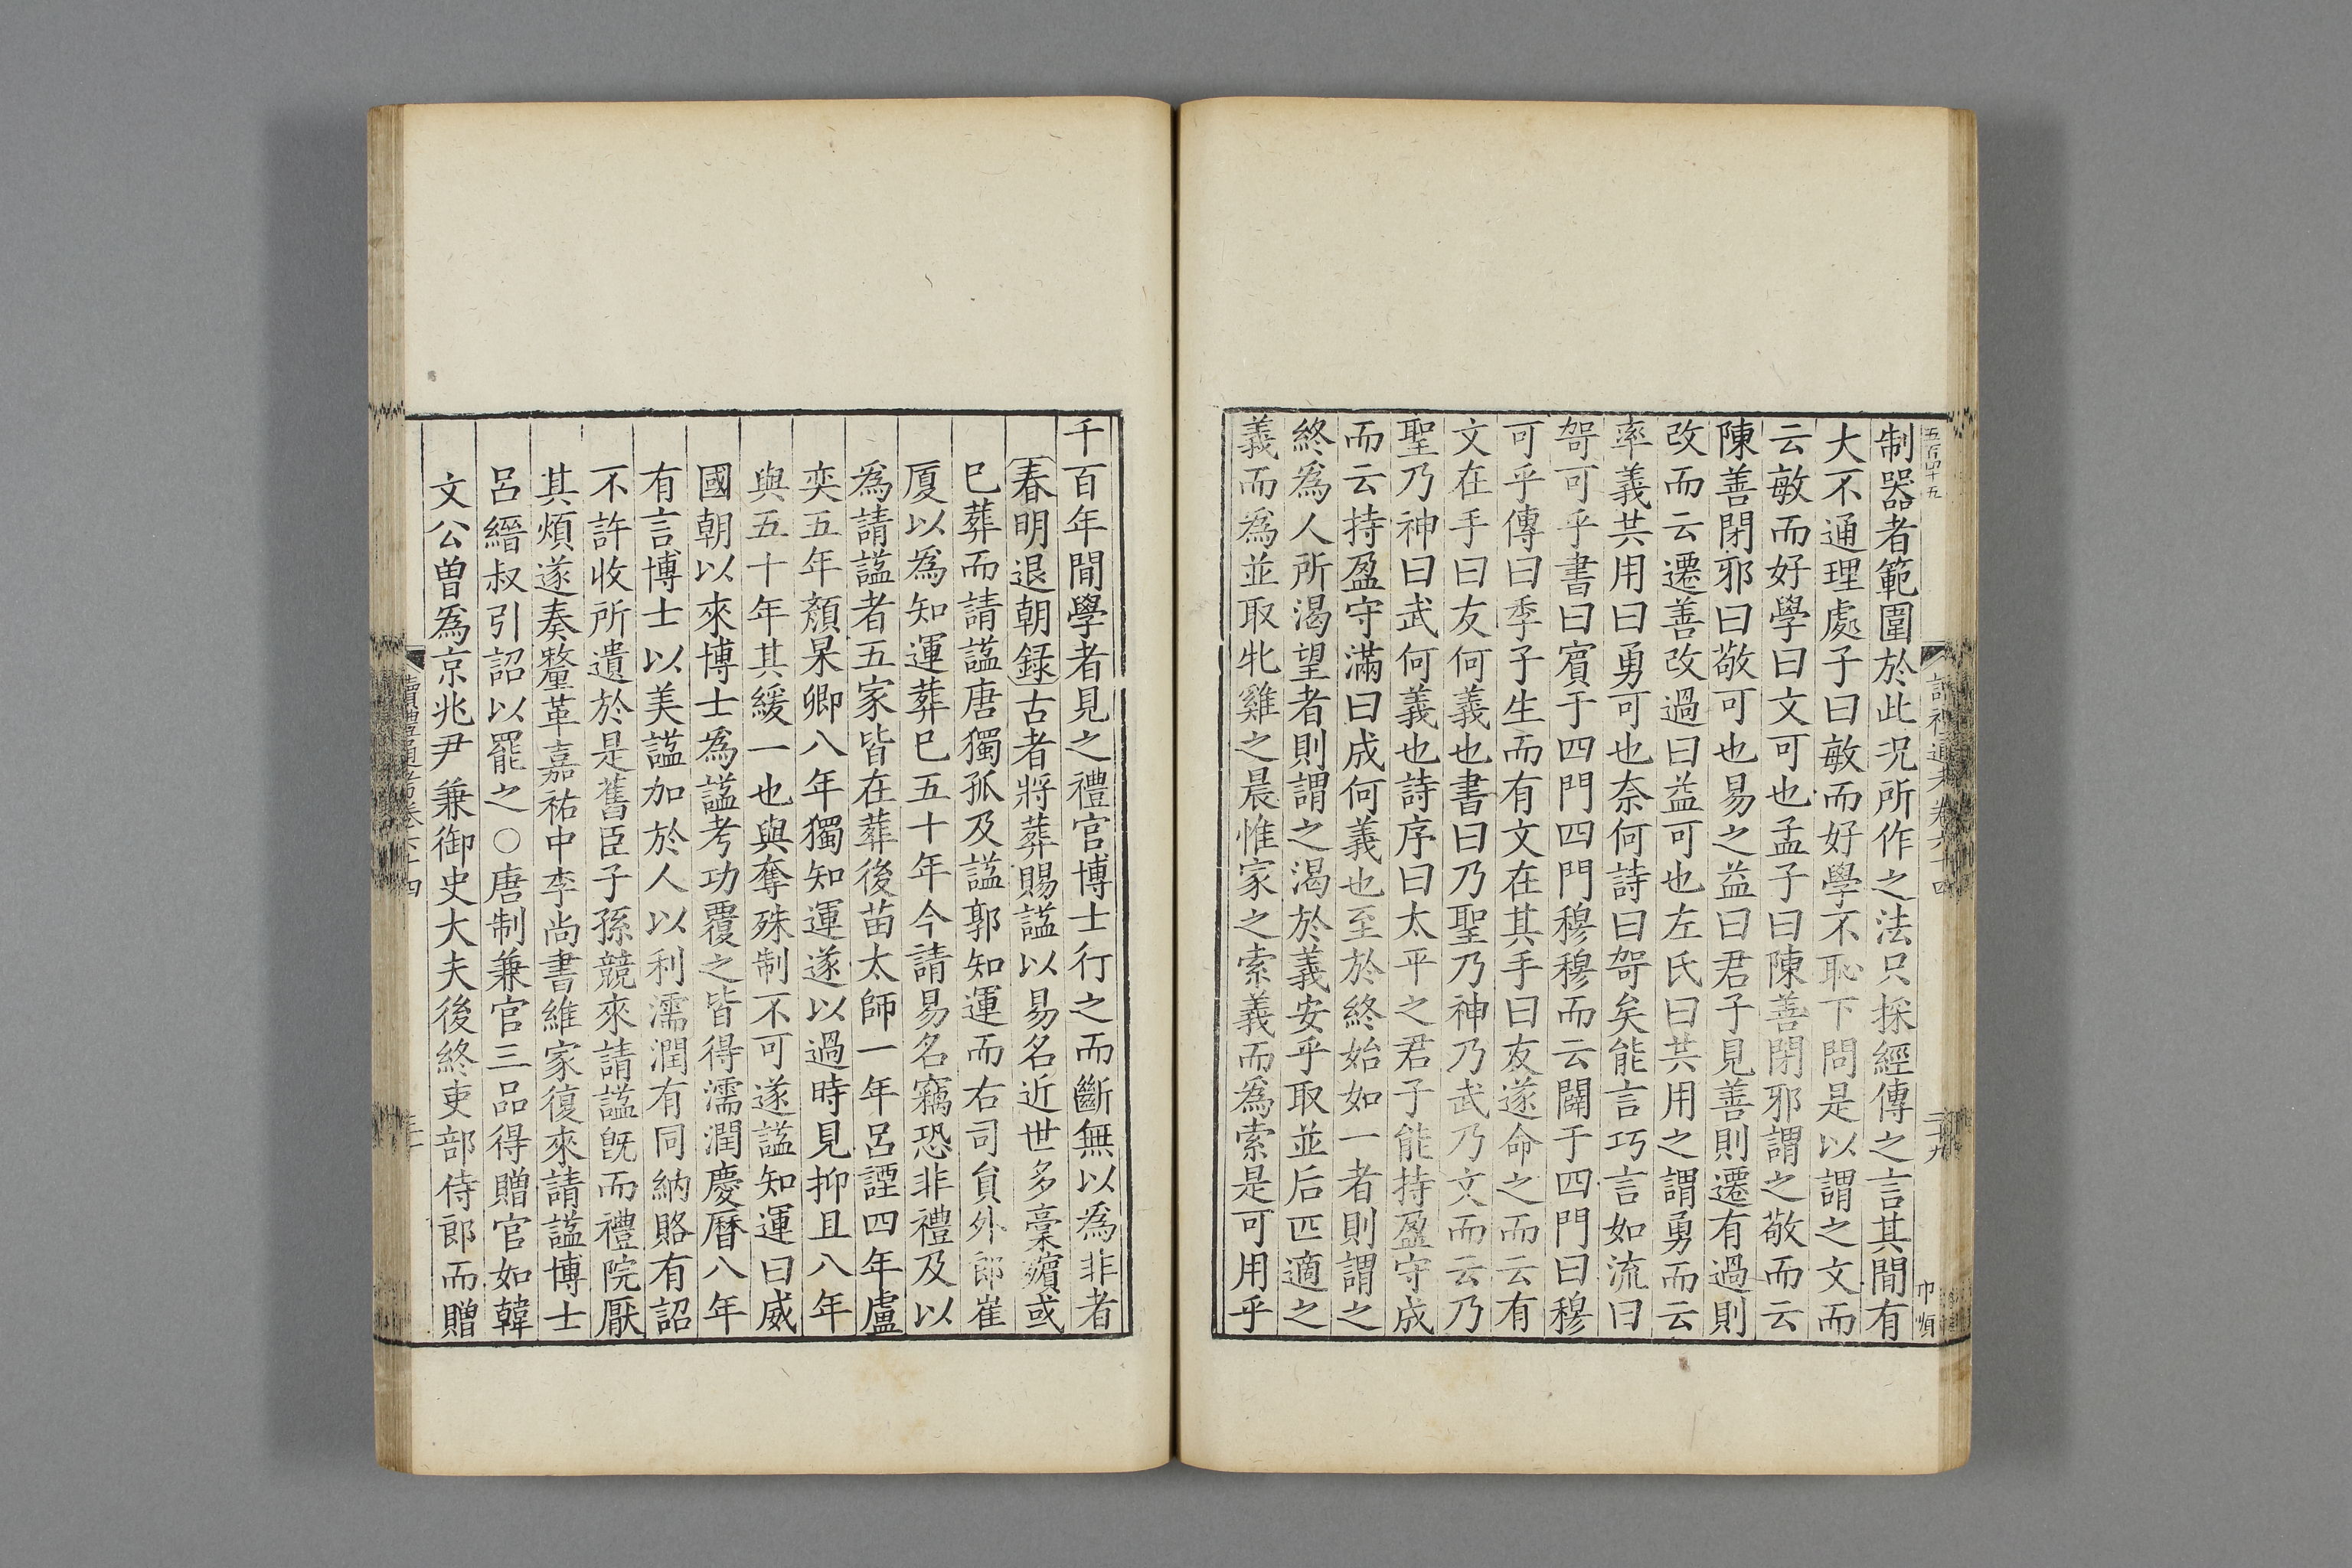 五百四十五
制器者範圍於此況所作之法只採經傳之言其間有
大不通理處子曰敏而好學不恥下問是以謂之文而
云敏而好學曰文可也孟子曰陳善閉邪謂之敬而云
陳善閉邪曰敬可也易之益曰君子見善則遷有過則
改而云遷善改過曰益可也左氏曰共用之謂勇而云
率義共用曰勇可也奈何詩曰哿矣能言巧言如流曰
哿可乎書曰賓于四門四門穆穆而云闢于四門曰穆
可乎傳曰季子生而有文在其手曰友遂命之而云有
文在手曰友何義也書曰乃聖乃神乃武乃文而云乃
聖乃神曰武何義也詩序曰太平之君子能持盈守成
而云持盈守滿曰成何義也至於終始如一者則謂之
終爲人所渴望者則謂之渴於義安乎取並后匹適之
義而爲並取牝雞之晨惟家之索義而爲索是可用乎
千百年間學者見之禮官博士行之而斷無以爲非者
春明退朝録古者將葬賜諡以易名近世多槀殯或
巳葬而請諡唐獨孤及諡郭知運而右司貟外郎崔
厦以爲知運葬巳五十年今請易名竊恐非禮及以
爲請諡者五家皆在葬後苗太師一年呂諲四年盧
奕五年顏杲卿八年獨知運遂以過時見抑且八年
與五十年其緩一也與奪殊制不可遂諡知運曰威
國朝以來博士為諡考功覆之皆得濡潤慶曆八年
有言博士以美諡加於人以利濡潤有同納賂有詔
不許收所遺於是舊臣子孫競來請諡旣而禮院厭
其煩遂奏釐革嘉祐中李尚書維家復來請諡博士
呂縉叔引詔以罷之○唐制兼官三品得贈官如韓
文公曾爲京兆尹兼御史大夫後終吏部侍郎而贈
讀禮通考卷六十四